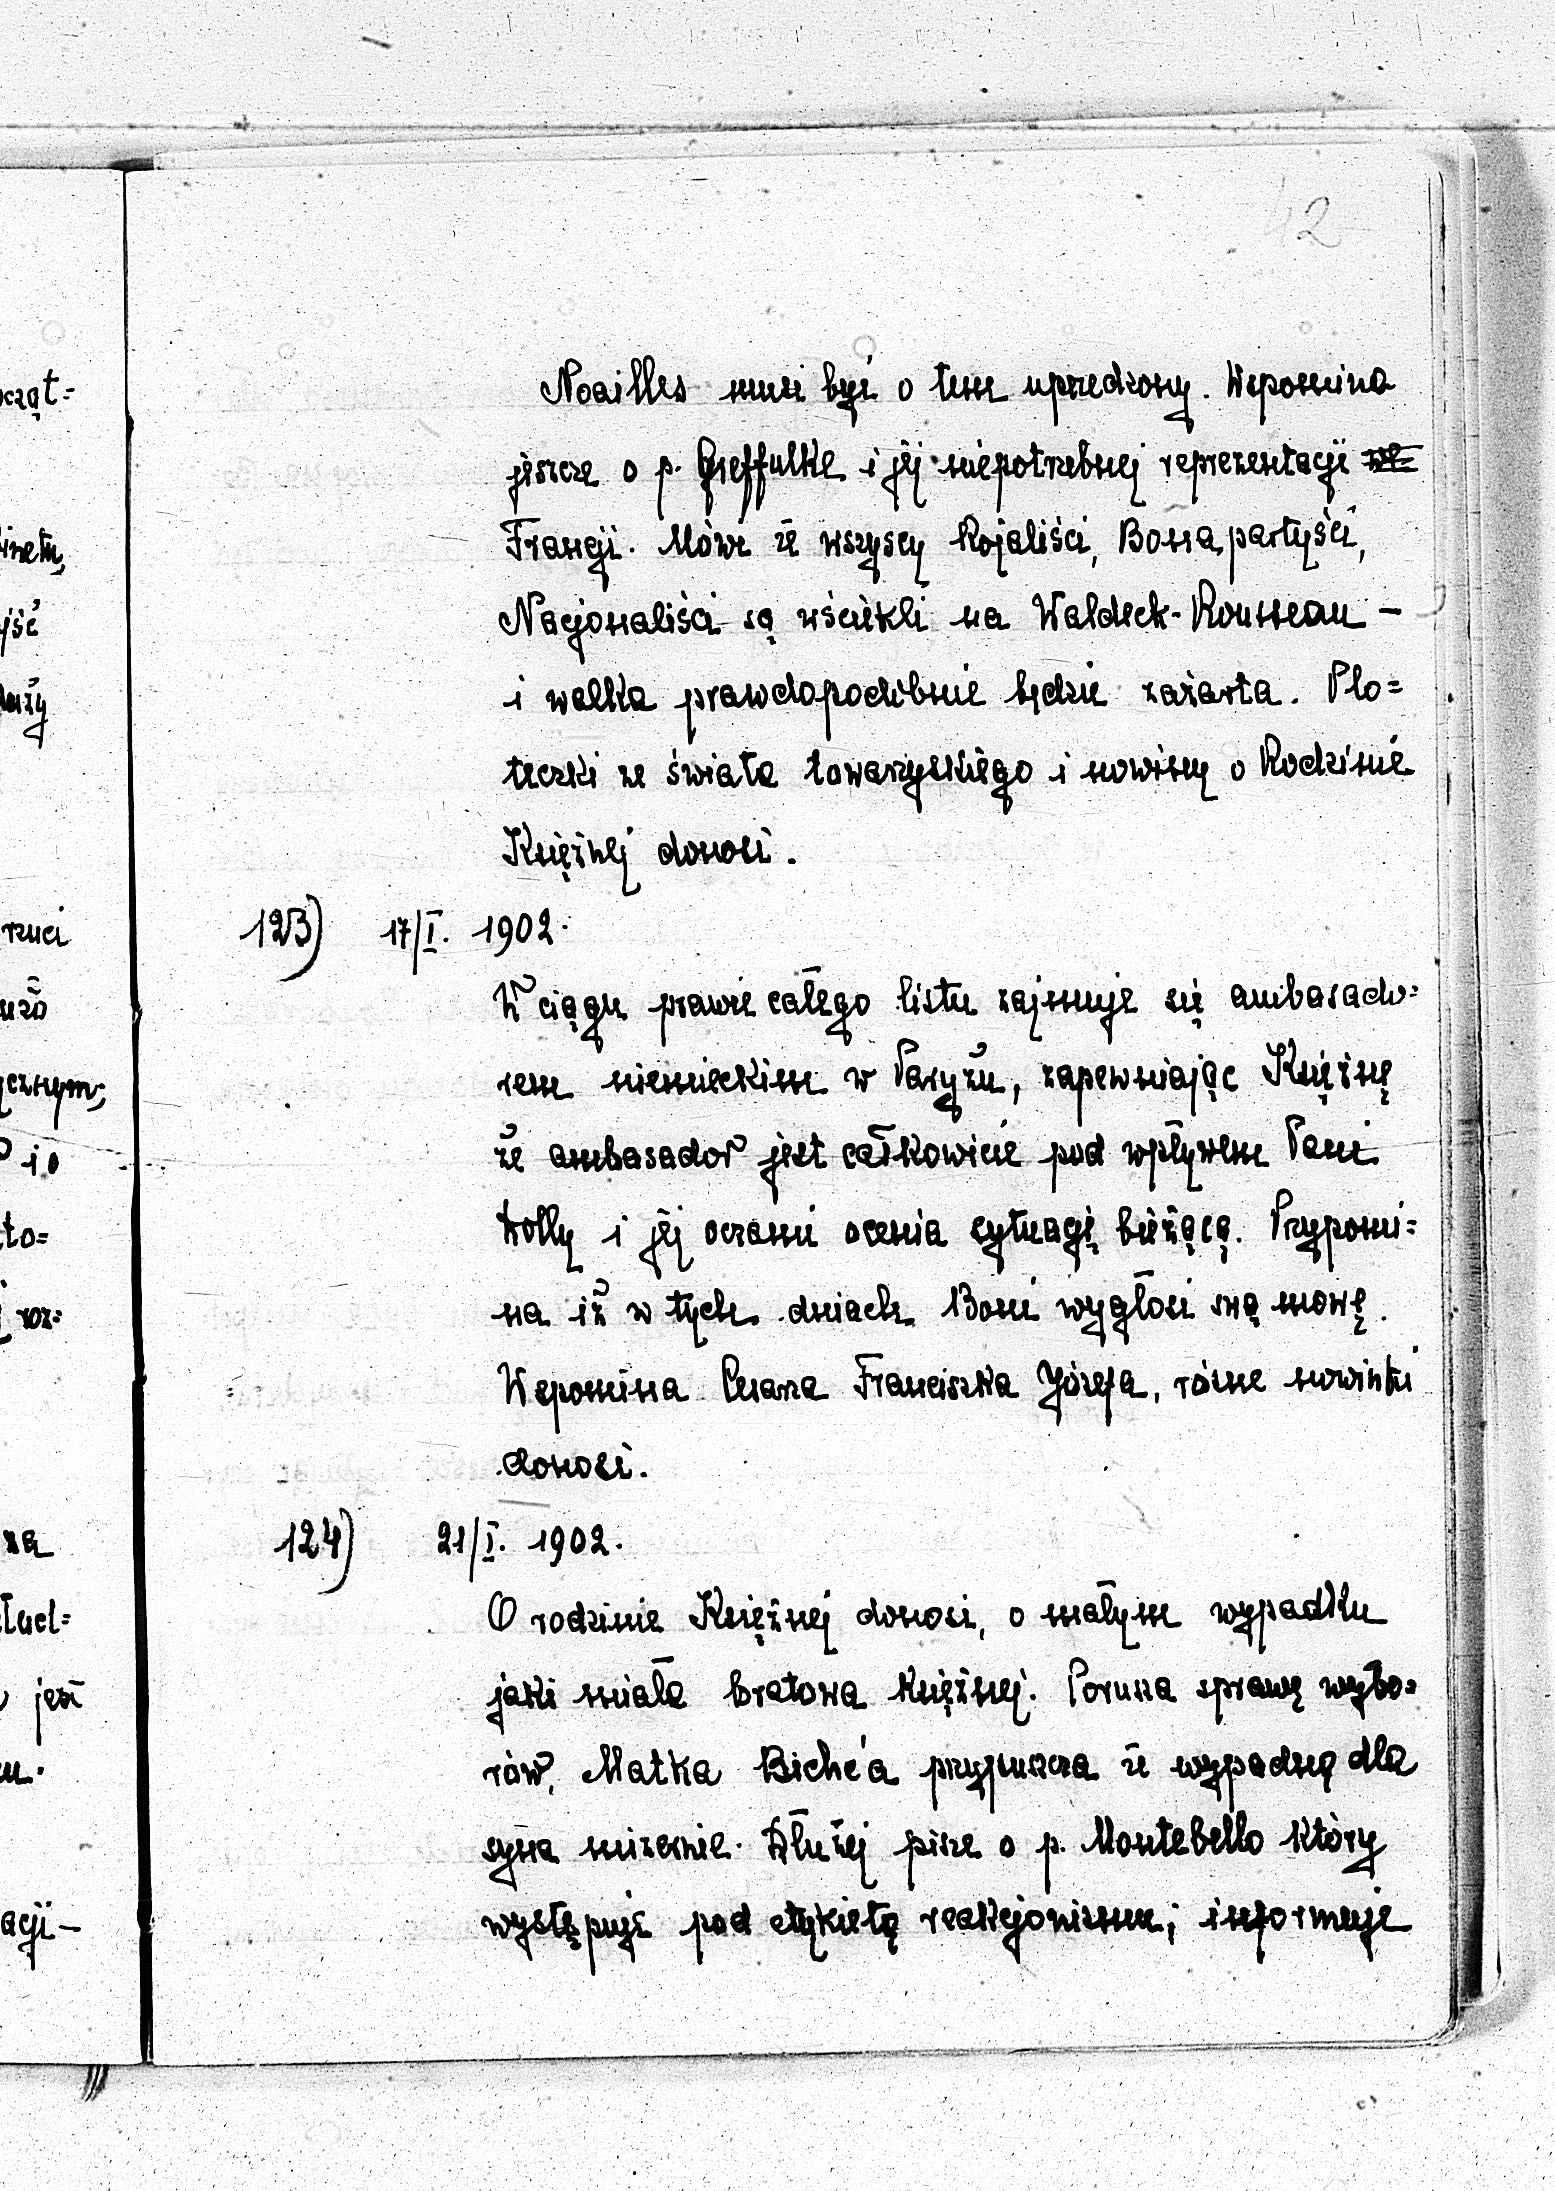 42
Noailles musi być o tem uprzedzony. Wspomina
jeszcze o p. Greffulke i jej niepotrzebnej reprezentacji we
Francji. Mówi że wszyscy Rojaliści, Bonapartyści,
Nacjonaliści są wściekli na Waldeck-Rousseau –
i walka prawdopodobnie będzie zażarta. Plo=
teczki ze świata towarzyskiego i nowiny o Rodzinie
Księżnej donosi.
123) 17/I. 1902.
W ciągu prawie całego listu zajmuje się ambasado=
rem niemieckim w Paryżu, zapewniając Księżnę
że ambasador jest całkowicie pod wpływem Pani
Kolly i jej oczami ocenia sytuację bieżącą. Przypomi=
na iż w tych dniach Boni wygłosi swą mowę.
Wspomina Cesarza Franciszka Józefa, różne nowinki
donosi.
124) 21/I. 1902.
O rodzinie Księżnej donosi, o małym wypadku
jaki miała bratowa Księżnej. Porusza sprawę wybo=
rów, Matka Biche'a przypuszcza że wypadną dla
syna mizernie. Dłużej pisze o p. Montebello który
występuje pod etykietą reakcjonizmu; informuje
ocząt=
jść
rzuci
ycznym;
i o
to=
roz=
za
jest
acji –